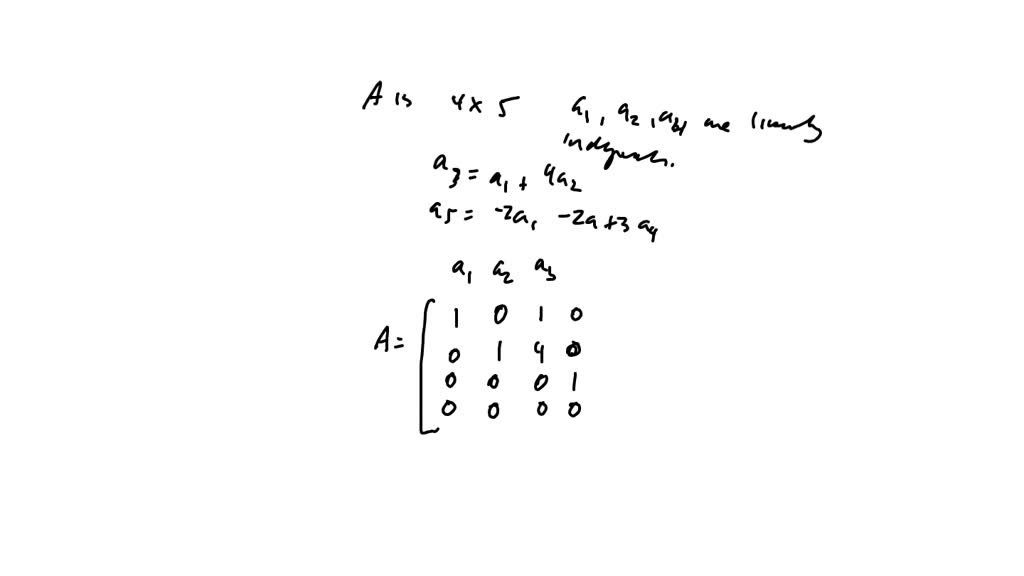 A is 4 x 5 a1, a2, a4 are linearly
independent.
a3 = a1 + 4a2
a5 = -2a1 -2a + 3a4
a1 a2 a3
1 0 1 0
A = 0 1 4 0
0 0 0 1
0 0 0 0